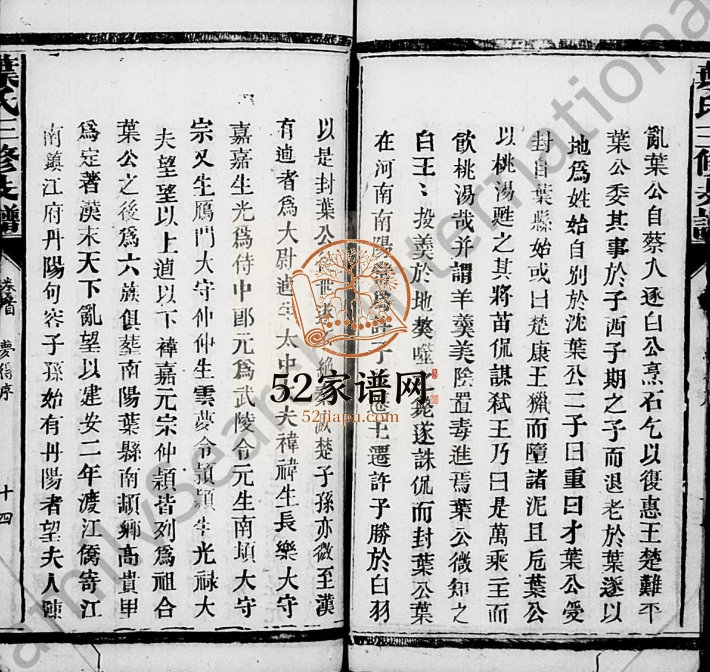 亂葉公自蔡入逐白公烹石乞以復惠王楚難平
葉公委其事於子西子期之子而退老於葉遂以
地爲姓始自別於沈葉公二子曰重曰才葉公受
封自葉縣始或曰楚康王獵而墮諸泥且卮葉公
以桃湯甦之其將苗侃謀弑王乃曰是萬乘主而
飲桃湯哉并謂羊羹美陰置毒進焉葉公微知之
白王王投羹於地獒噬獒斃遂誅侃而封葉公葉
在河南南陽 爲許 遷王遷許子勝於白羽
以是封葉公 世 楚子孫亦微至漢
有逈者爲大尉逈生太中 夫禕禕生長樂大守
嘉嘉生光爲侍中郎元爲武陵令元生南頓大守
宗又生鴈門大守仲仲生雲夢令頴頴生光祿大
夫望望以上道以下禕嘉元宗仲頴皆列爲祖合
葉公之後爲六族俱塟南陽葉縣南頓鄉高貴甲
爲定著漢末天下亂望以建安二年渡江僑寄江
南鎮江府丹陽句容子孫始有丹陽者望夫人陳
葉氏三修支譜
卷首 夢得序 十四
葉氏三修支譜
52家谱网
52jiapu.com